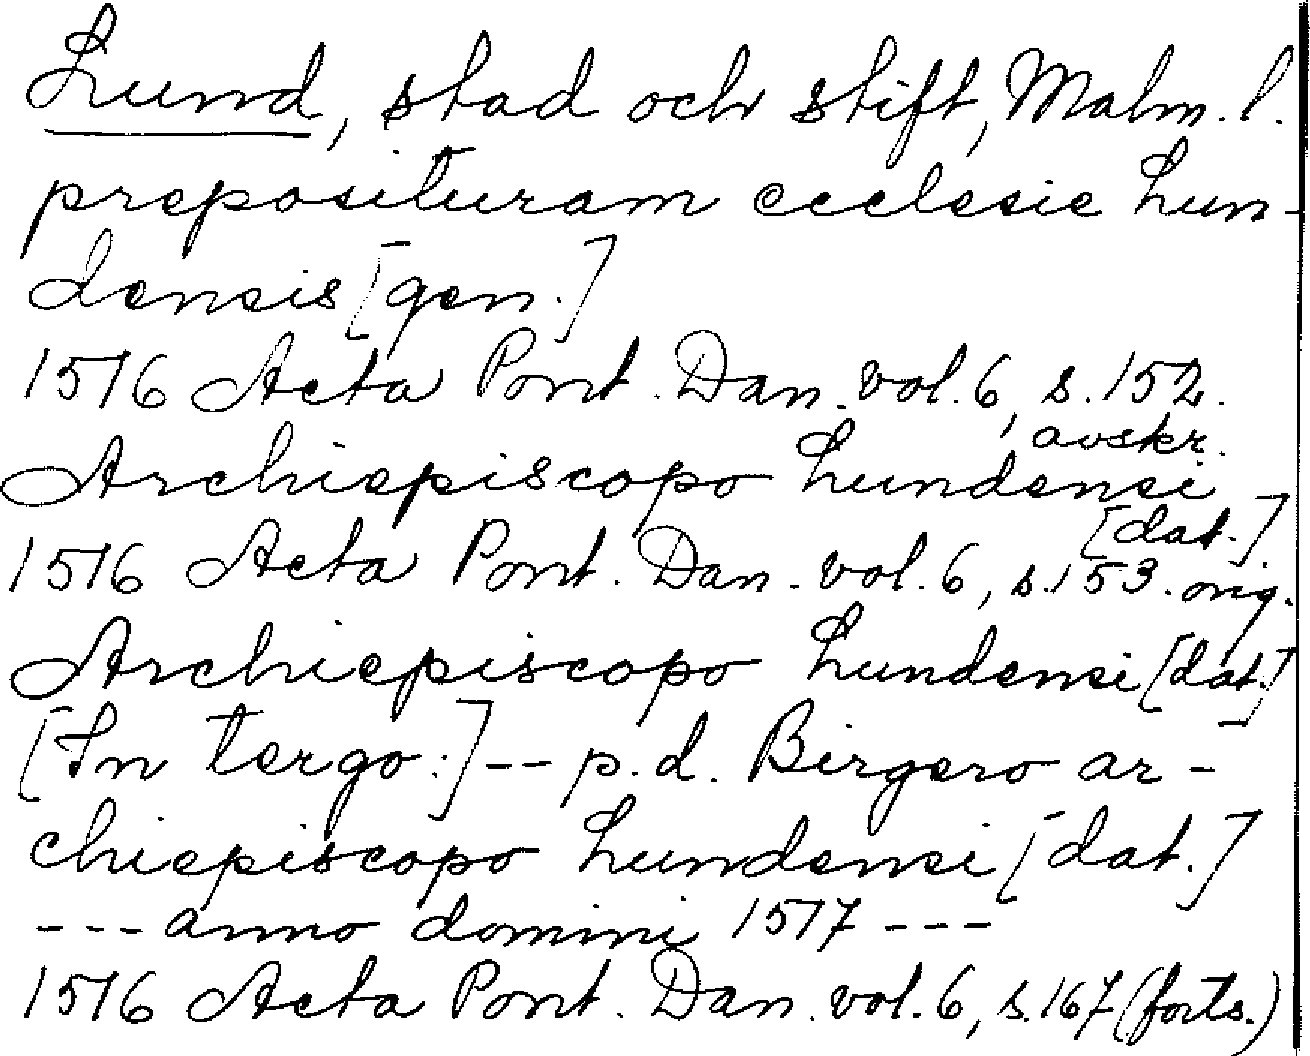 Lund, stad och stift, Malm. l.
preposituram ecclesie Lun-
densis [gen.]
1516 Acta Pont. Dan. vol. 6, s. 152.
avskr.
Archiepiscopo Lundensi
[dat.]
1516 Acta Pont. Dan. vol. 6, s. 153. orig.
Archiepiscopo Lundensi [dat.]
[In tergo:] -- p. d. Birgero ar-
chiepiscopo Lundensi [dat.]
--- anno domini 1517 ---
1516 Acta Pont. Dan. vol. 6, s. 167 (forts.)